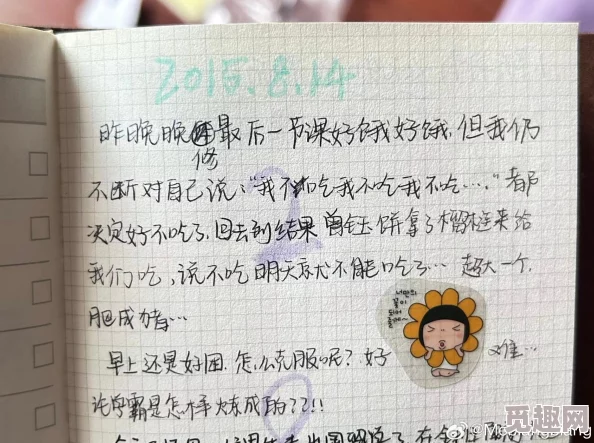 2015.8.14
昨晚晚修最后一节课好饿好饿,但我仍
不断对自己说:“我不吃我不吃我不吃……”都
决定好不吃了,回去到结果曾钰饼拿了榴梿来给
我们吃,说不吃明天就不能吃了… 超大一个,
肥成猪…
早上还是好困,怎么克服呢?好难…
너만의
꽃이
되어
줄게~
论学霸是怎样炼成的??!!
觅趣网